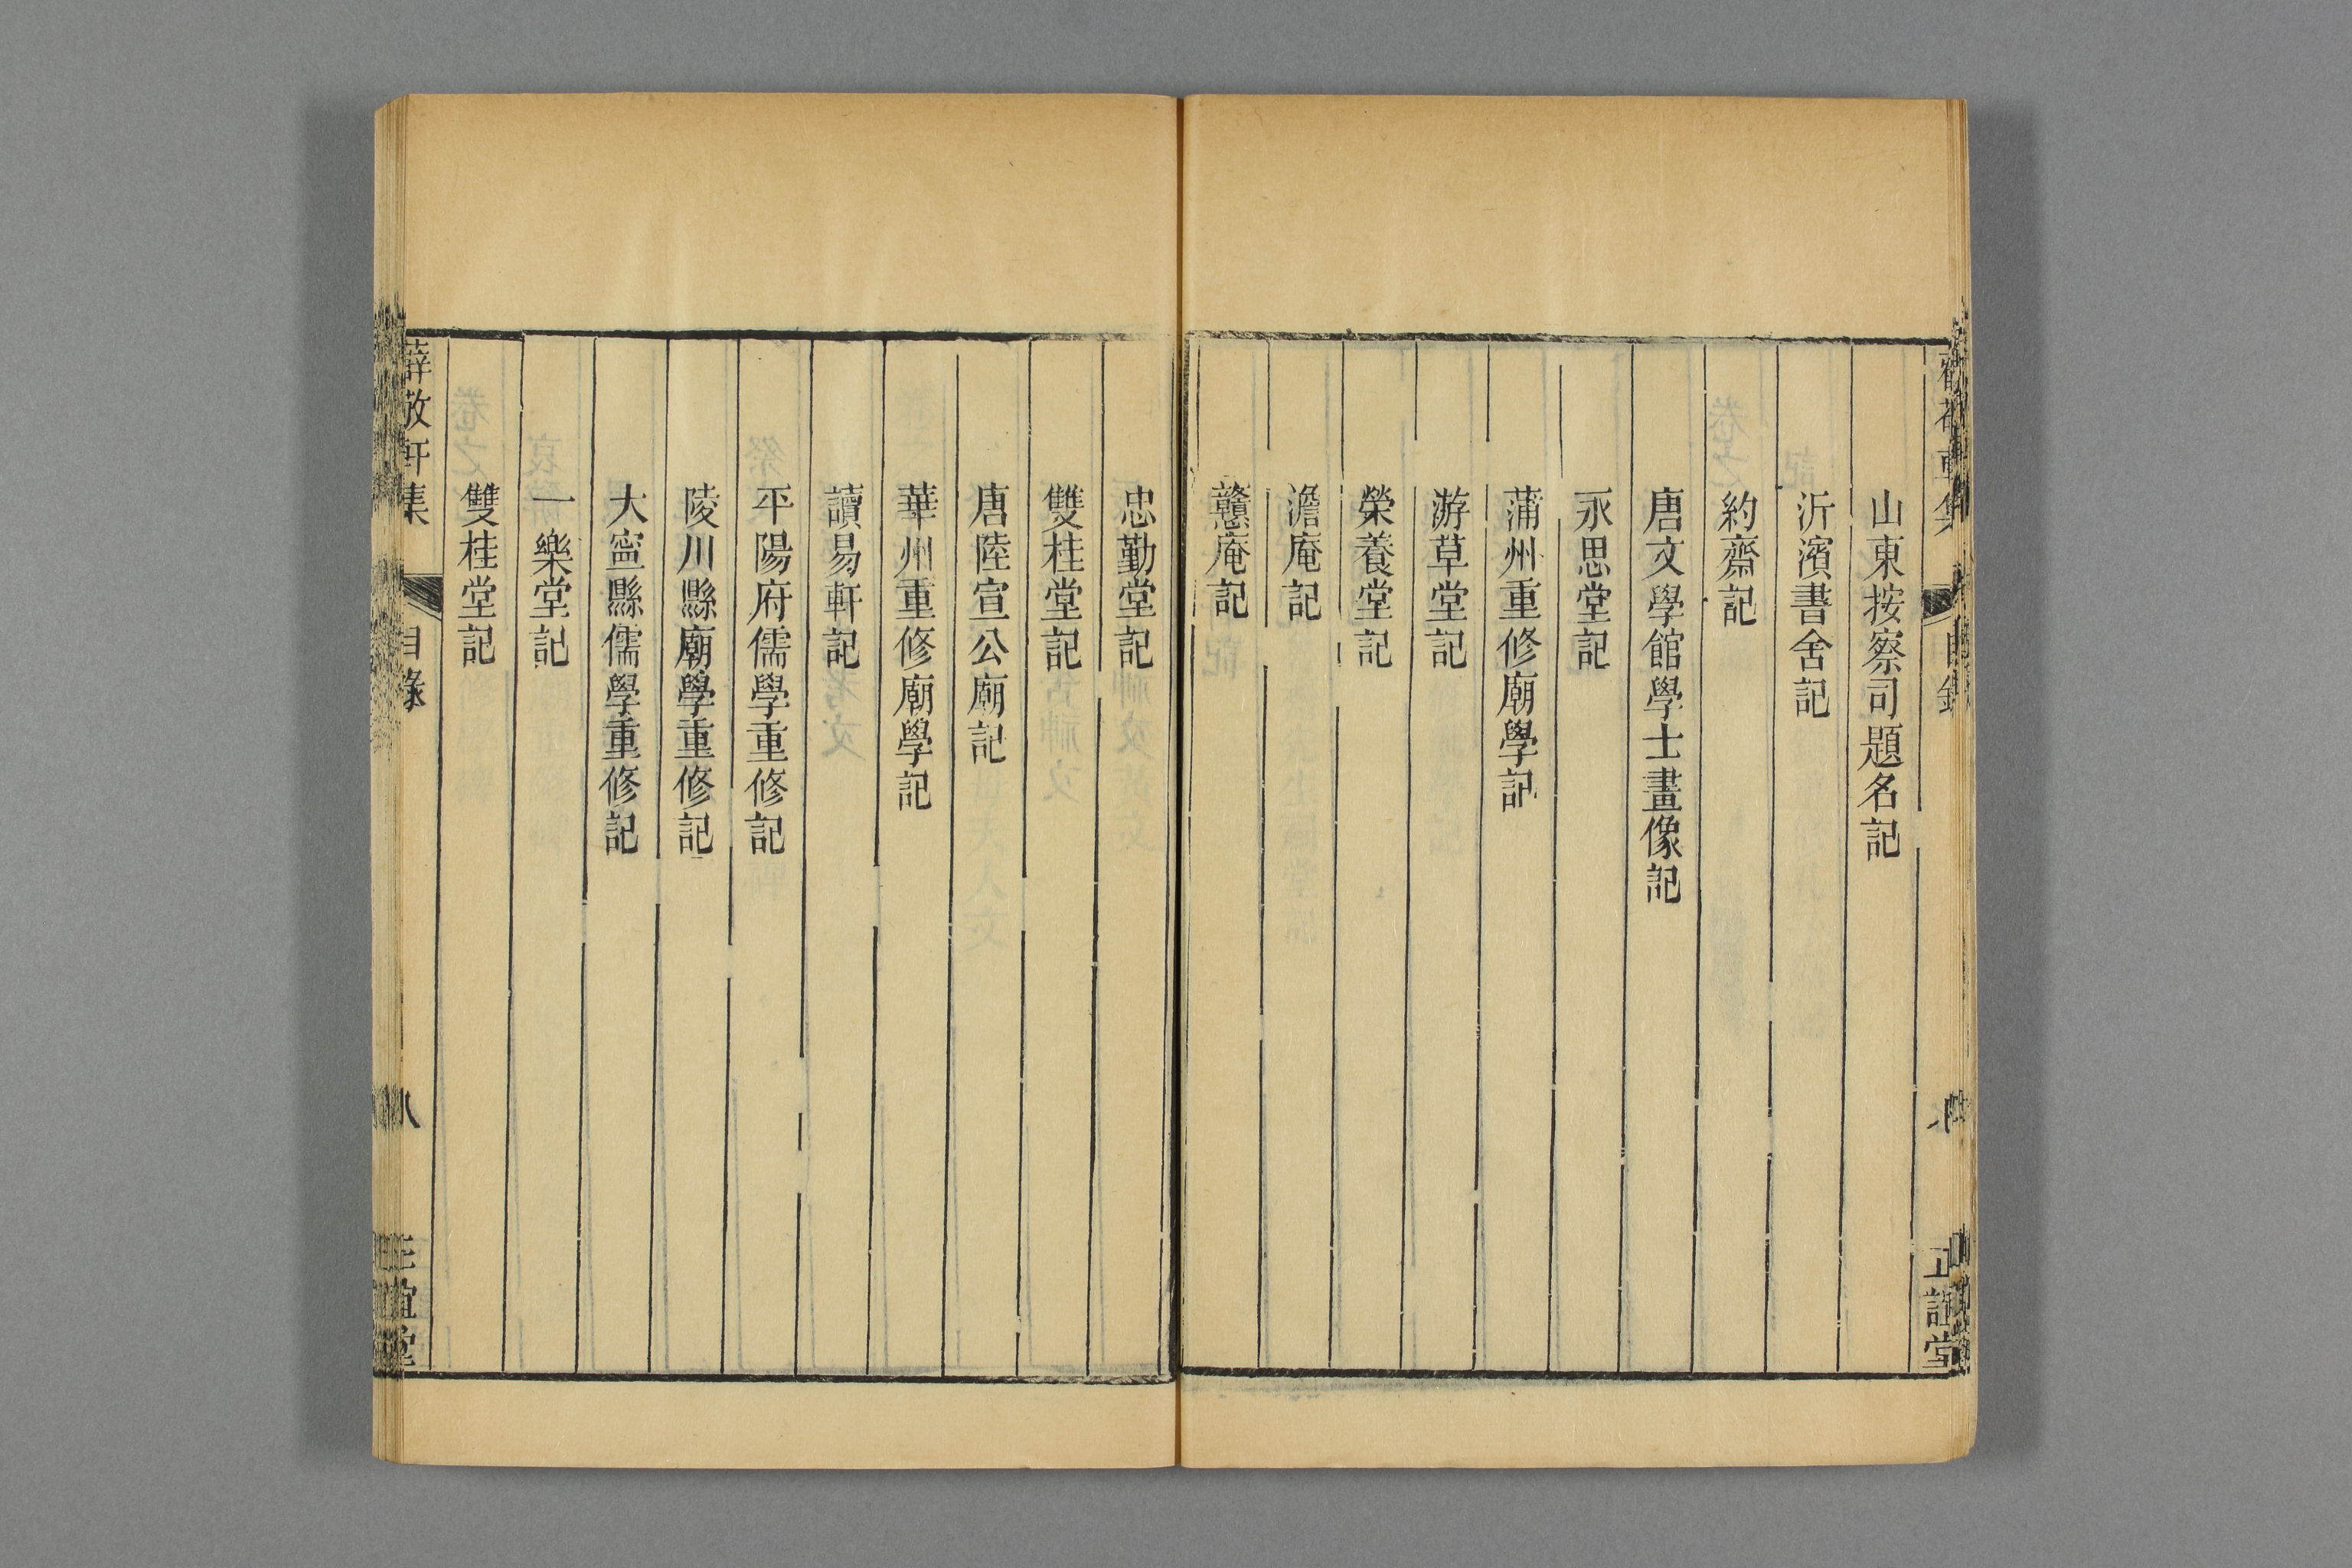 山東按察司題名記
沂濱書舍記
約齋記
唐文學館學士畫像記
永思堂記
蒲州重修廟學記
游草堂記
榮養堂記
澹庵記
戇庵記
忠勤堂記
雙桂堂記
唐陸宣公廟記
華州重修廟學記
讀易軒記
平陽府儒學重修記
陵川縣廟學重修記
大寧縣儒學重修記
一樂堂記
雙桂堂記
薛敬軒集
目錄
八
正誼堂